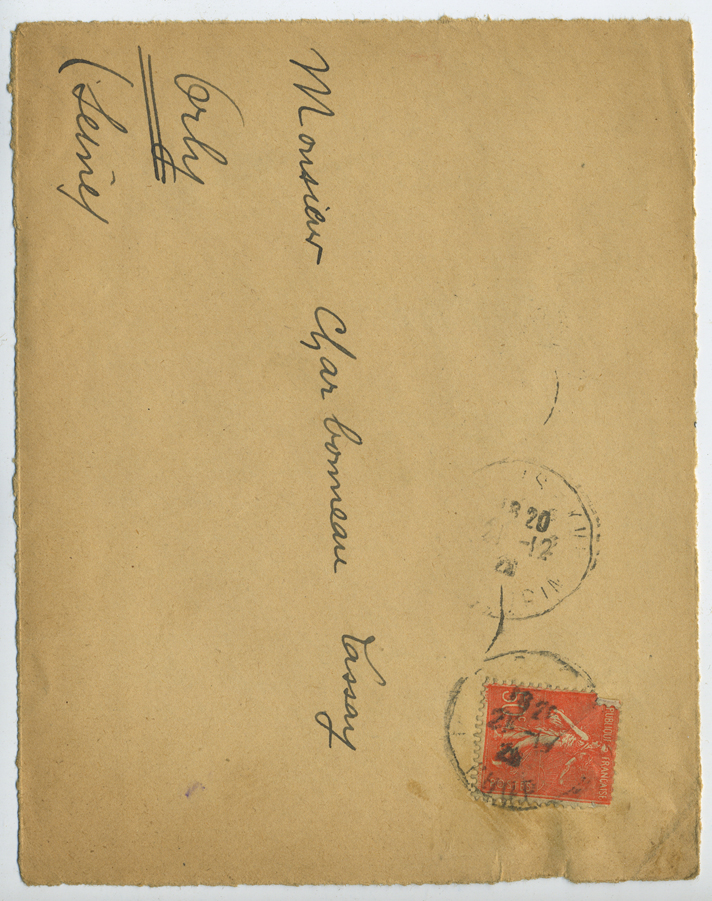 Monsieur Charbonneau Lassay
Orly
(Seine)
18 20
-12
RÉPUBLIQUE FRANÇAISE